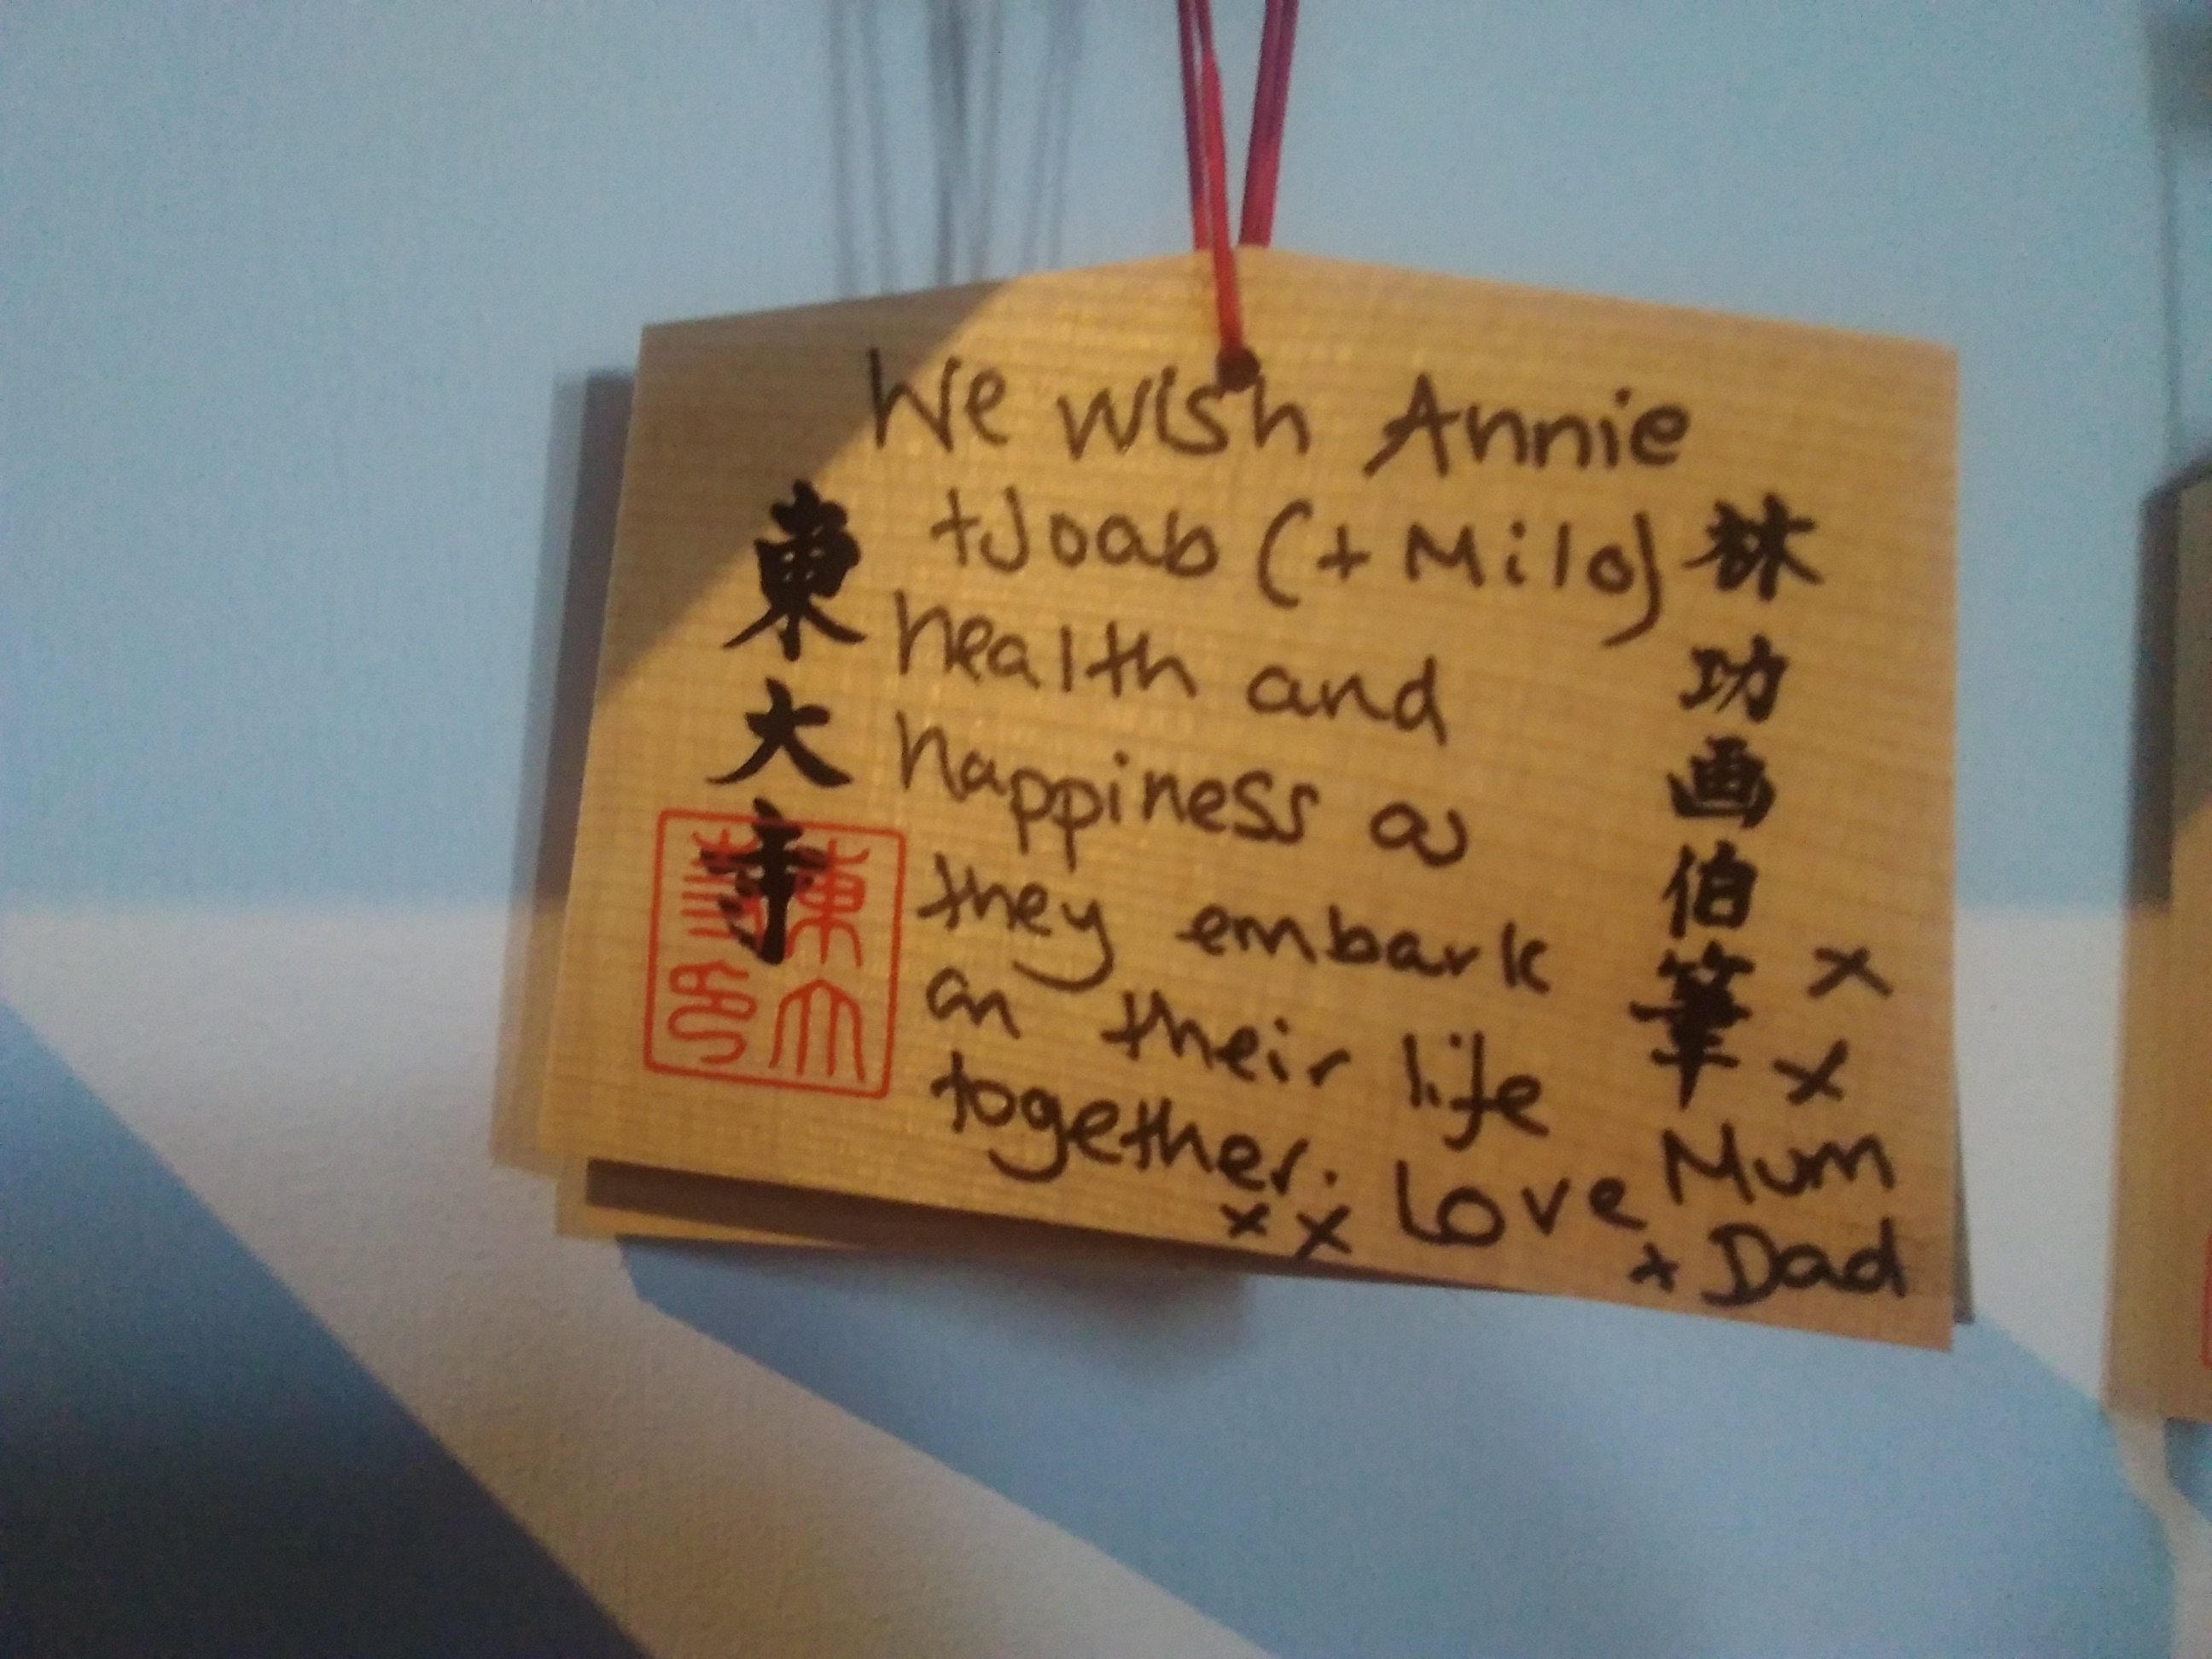 We wish Annie
+ Joab (+ Milo)
health and
happiness as
they embark
on their life
together. Love Mum
x x + Dad
x
x
東大寺
林功画伯筆
東大寺印